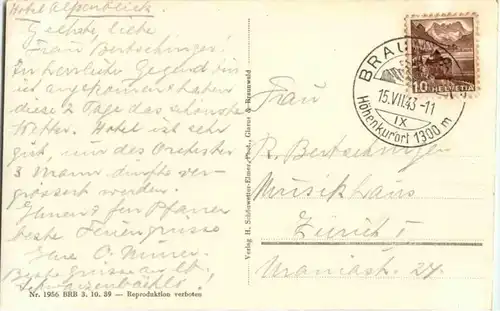 Hotel Alpenblick.
Geehrte, liebe
Frau Bertschinger!
In herrliche Gegend bin
ich angekommen & haben
diese 2 Tage das schönste
Wetter. Hotel ist sehr
gut, nur das Orchester
3 Mann dürfte ver-
grössert werden.
Ihnen &
beste Feriengrüsse
Ihre O.
Beste Grüsse an Ub.
Verlag H. Schönwetter-Elmer, Phot., Glarus & Braunwald
Nr. 1956 BRB 3. 10. 39 — Reproduktion verboten
BRAUN
15.VII.43-11
IX
Höhenkurort 1300 m
10 HELVETIA
Frau
R. Bertschinger
Musikhaus
Zürich I
Uraniastr. 24.